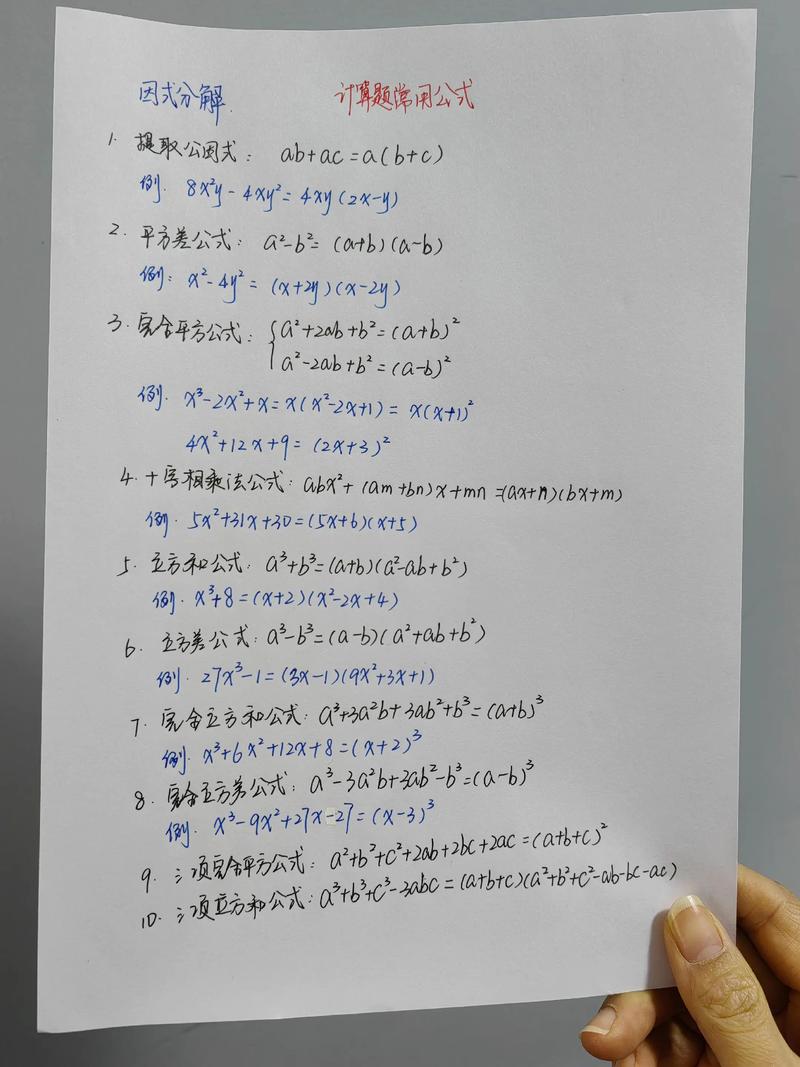 因式分解 计算题常用公式
1. 提取公因式: ab+ac=a(b+c)
例. 8x²y-4xy²=4xy(2x-y)
2. 平方差公式: a²-b²=(a+b)(a-b)
例: x²-4y²=(x+2y)(x-2y)
3. 完全平方公式: { a²+2ab+b²=(a+b)²
a²-2ab+b²=(a-b)²
例. x³-2x²+x=x(x²-2x+1)=x(x+1)²
4x²+12x+9=(2x+3)²
4. 十字相乘法公式: abx²+(am+bn)x+mn=(ax+n)(bx+m)
例. 5x²+31x+30=(5x+6)(x+5)
5. 立方和公式: a³+b³=(a+b)(a²-ab+b²)
例. x³+8=(x+2)(x²-2x+4)
6. 立方差公式: a³-b³=(a-b)(a²+ab+b²)
例. 27x³-1=(3x-1)(9x²+3x+1)
7. 完全立方和公式: a³+3a²b+3ab²+b³=(a+b)³
例. x³+6x²+12x+8=(x+2)³
8. 完全立方差公式: a³-3a²b+3ab²-b³=(a-b)³
例. x³-9x²+27x-27=(x-3)³
9. 三项完全平方公式: a²+b²+c²+2ab+2bc+2ac=(a+b+c)²
10. 三项立方和公式: a³+b³+c³-3abc=(a+b+c)(a²+b²+c²-ab-bc-ac)